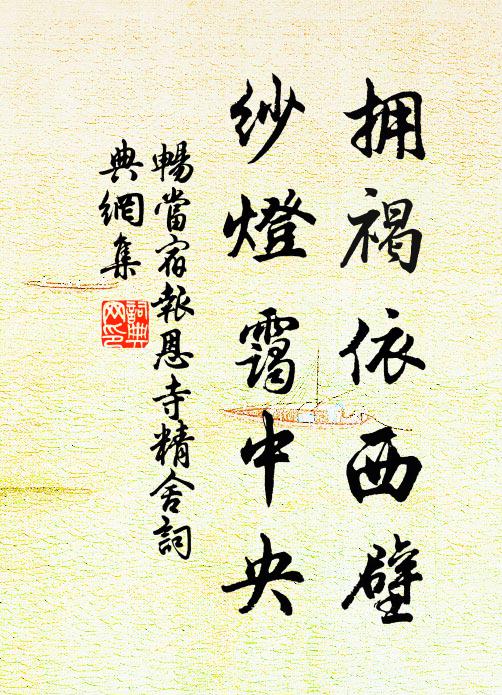 拥褐依西壁
纱燈靄中央
暢當宿報恩寺精舍詞
典網集
詞典
网印